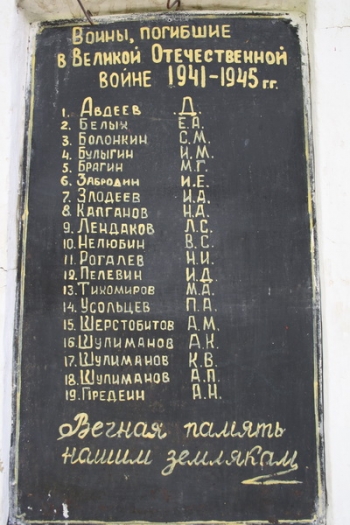 Воины, погибшие
в Великой Отечественной
войне 1941-1945 г.г.
1. Авдеев Д.
2. Белых Е.А.
3. Болонкин С.М.
4. Булыгин И.М.
5. Брагин М.Г.
6. Забродин И.Е.
7. Злодеев И.А.
8. Капганов Н.А.
9. Лендаков Л.С.
10. Нелюбин В.С.
11. Рогалев Н.И.
12. Пелевин И.Д.
13. Тихомиров М.А.
14. Усольцев П.А.
15. Шерстобитов А.М.
16. Шулиманов Д.К.
17. Шулиманов К.В.
18. Шулиманов А.П.
19. Предеин А.Н.
Вечная память
нашим землякам